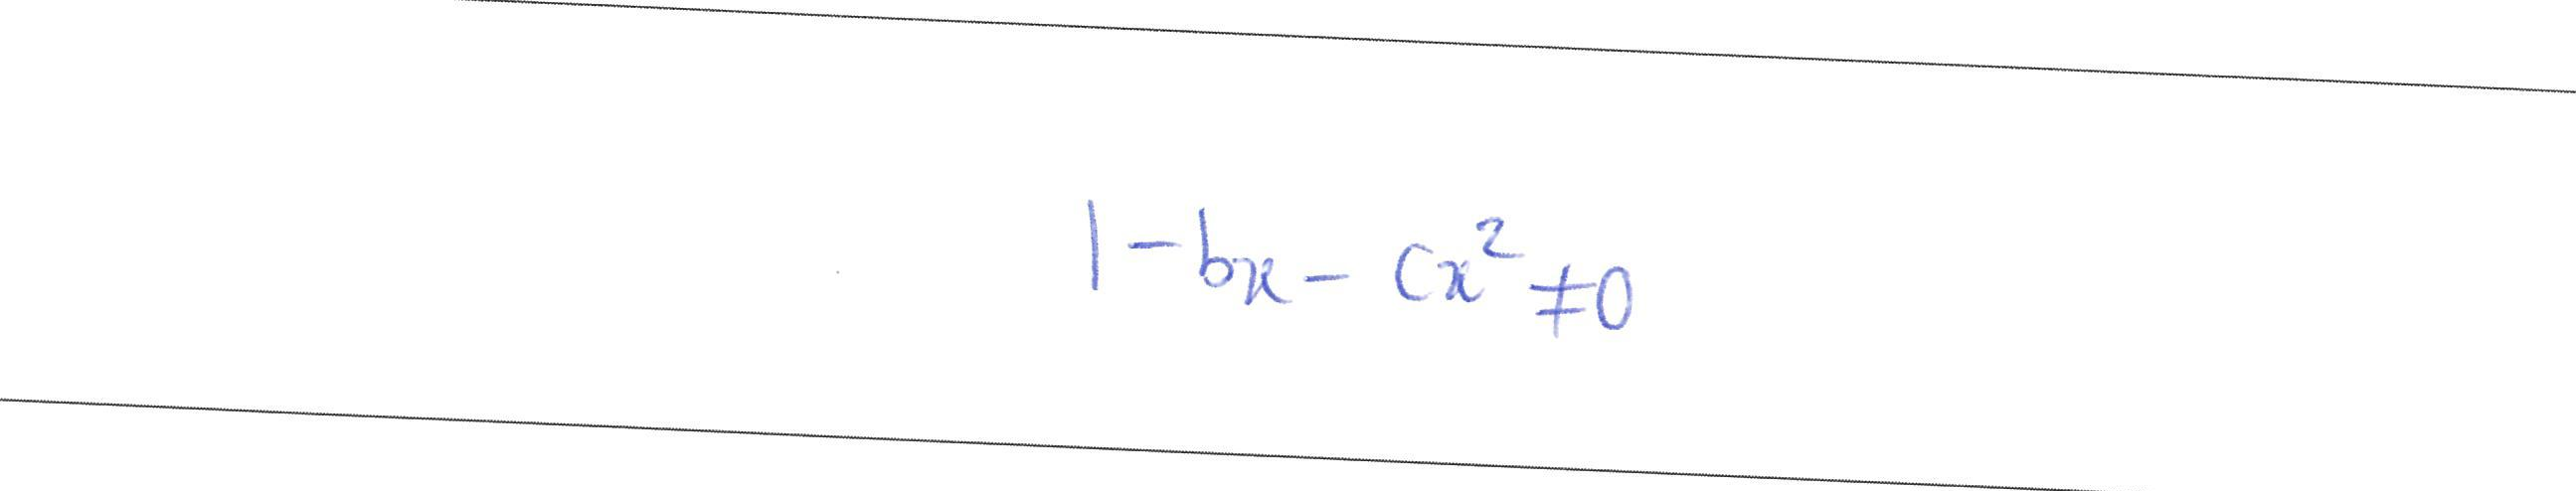 1 - bx - cx² ≠ 0